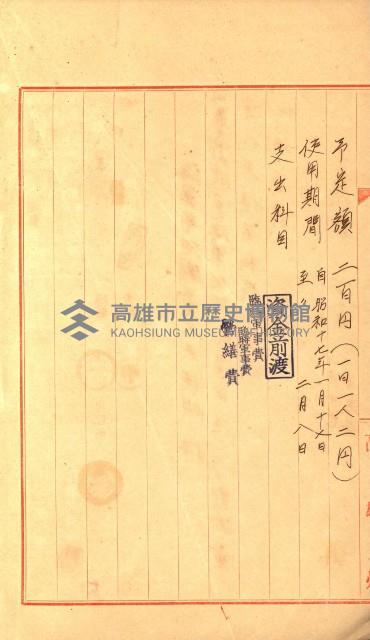 予定額 二百円(一日一人二円)
使用期間 自昭和十七年一月十七日
至〃 二月八日
支出科目
資金前渡
臨時軍事費
臨時軍事費
營繕費
高雄市立歷史博物館
KAOHSIUNG MUSEUM OF HISTORY